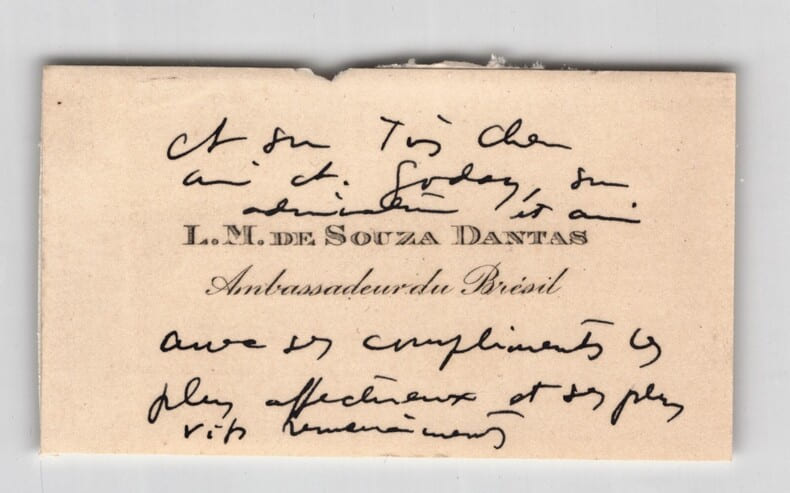 A son Très cher
ami A. Goday, son
admirateur et ami
L.M. DE SOUZA DANTAS
Ambassadeur du Brésil
avec ses compliments les
plus affectueux et ses plus
vifs remerciements